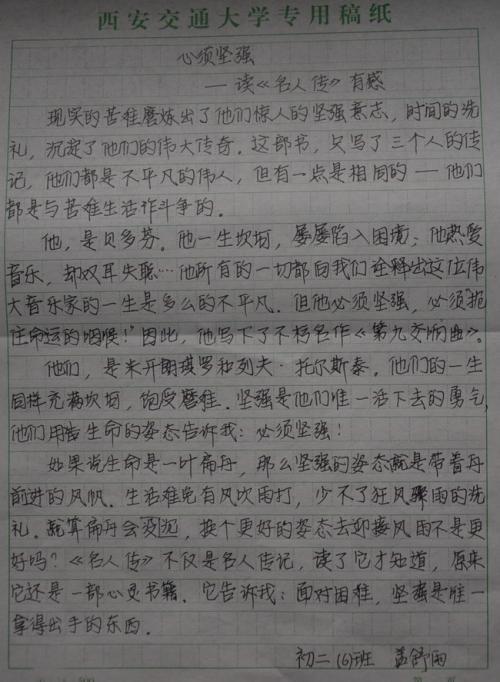 西安交通大学专用稿纸
必须坚强
——读《名人传》有感
现实的苦难磨炼出了他们惊人的坚强意志，时间的洗
礼，沉淀了他们的伟大传奇。这部书，只写了三个人的传
记，他们都是不平凡的伟人，但有一点是相同的——他们
都是与苦难生活作斗争的。
他，是贝多芬。他一生坎坷，屡屡陷入困境；他热爱
音乐，却双耳失聪…他所有的一切都向我们诠释出这位伟
大音乐家的一生是多么的不平凡。但他必须坚强，必须“扼
住命运的咽喉！”因此，他写下了不朽名作《第九交响曲》。
他们，是米开朗琪罗和列夫·托尔斯泰。他们的一生
同样充满坎坷，饱受磨难。坚强是他们唯一活下去的勇气，
他们用着生命的姿态告诉我：必须坚强！
如果说生命是一叶扁舟，那么坚强的姿态就是带着舟
前进的风帆。生活难免有风吹雨打，少不了狂风骤雨的洗
礼。就算扁舟会没迈，换个更好的姿态去迎接风雨不是更
好吗？《名人传》不仅是名人传记，读了它才知道，原来
它还是一部心灵书籍。它告诉我：面对困难，坚强是唯一
拿得出手的东西。
初二（6）班 孟舒雨